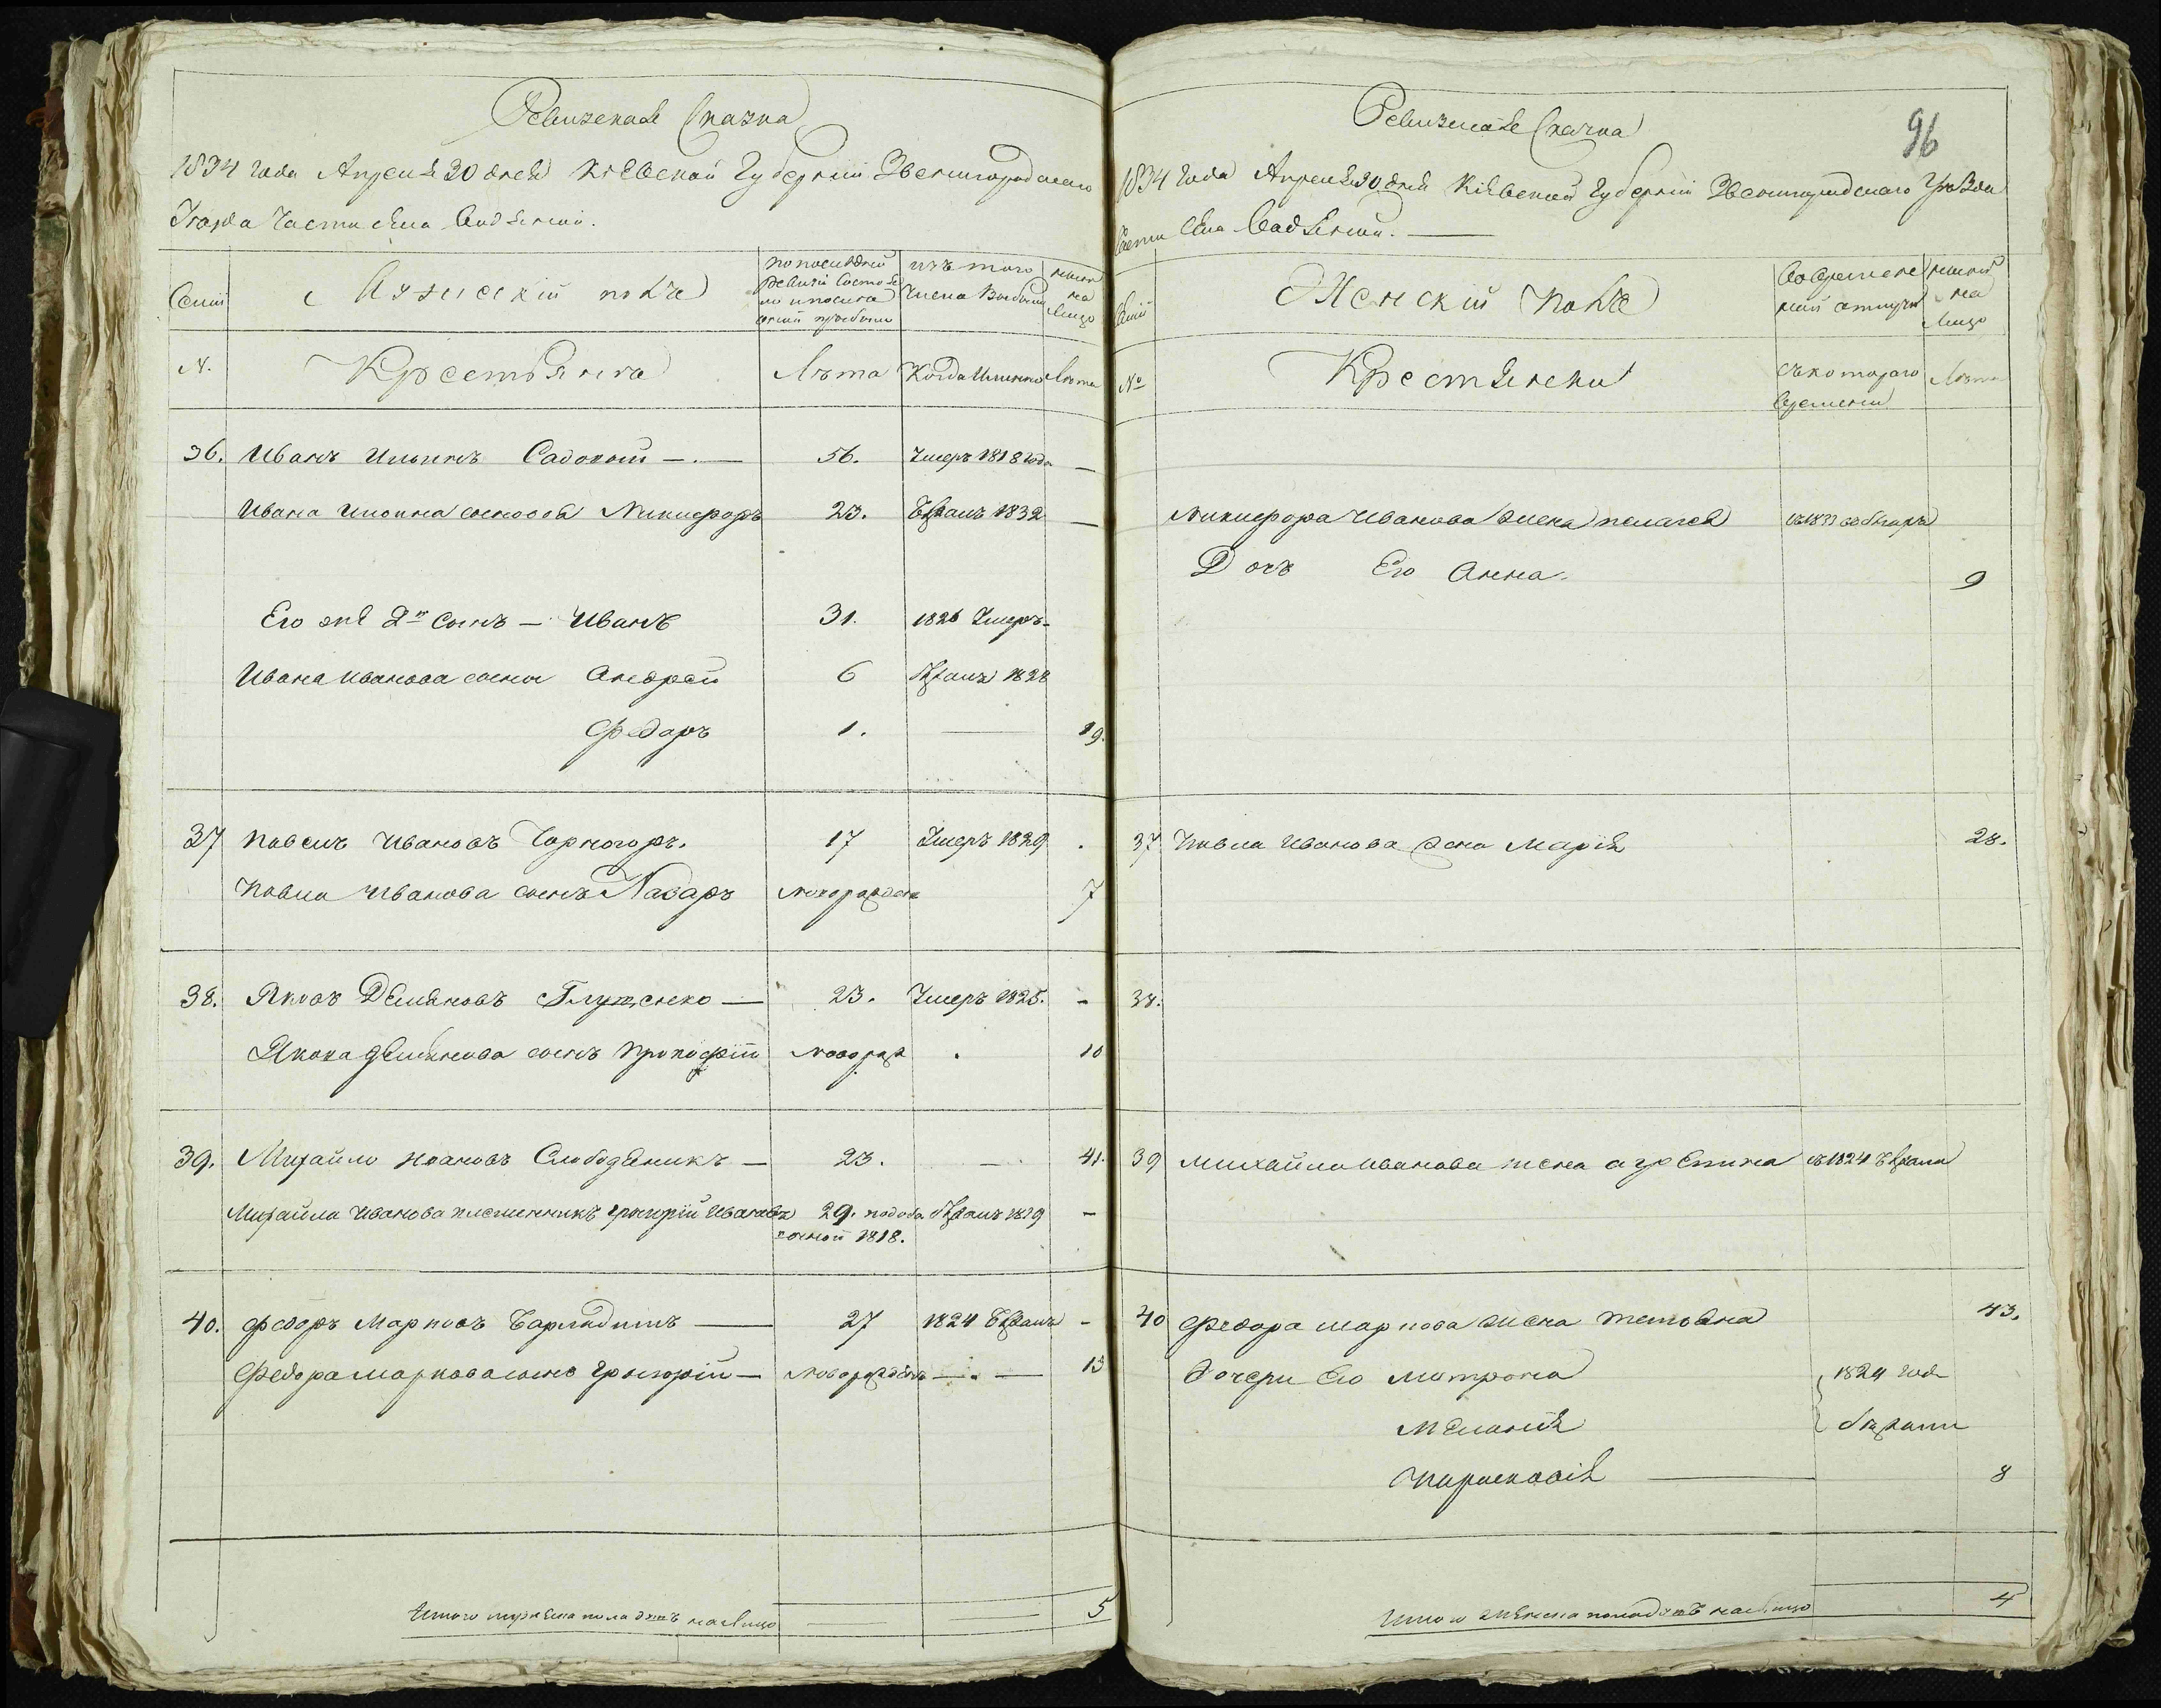 Ревизская Сказка
1834 года Апреля 30 дня Кіевской Губерніи Звенигородскаго
Уезда Части села
Семіи
Мужескій полъ
по последней
Ревизіи состоя
ло и после
оной прибыло
изъ того
числа выбыло
ныне
на
лицо
№.
Крестьяне
Лѣта
Когда именно
Лѣта
36. Иванъ Ильинъ — 56. Умеръ 1818 года —
Ивана Ильина сыновья Никифоръ 23. Бѣжалъ 1832 —
Его же 2й сынъ — Иванъ 31. 1826 Умеръ
Ивана Иванова сыны Андрей 6 Бѣжалъ 1828
Федоръ 1. — 19.
37 Павелъ Ивановъ Чорногоръ. 17 Умеръ 1829 .
Павла Иванова сынъ Назаръ Новорожденъ 7
38. Яковъ Демяновъ — 23. Умеръ 1825. -
Якова Демянова сынъ Прокофій Новорож . 10
39. Михайло Ивановъ Слободяникъ — 23. — 41.
Михайла Иванова племенникъ Григорій Ивановъ 29. Бѣжалъ 1819 -
1818.
40. Федоръ Марковъ — 27 1824 Бѣжалъ -
Федора Маркова сынъ Григорій — Новорожденъ — 13
Итого мужеска пола душъ налицо — — 5
96
Ревизская Сказка
1834 Года Апреля 30 дня Кіевской Губерніи Звенигородскаго Уезда
Части села
Семіи
Женскій Полъ
Во времен
ной отлучке
ныне
на
лицо
№
Крестьянки
съ котораго
времени
Лѣта
Никифора Иванова жена Пелагея въ 1833
Дочь Его Анна. 9
37 Павла Иванова жена Марія 28.
38.
39 Михайла Иванова жена Агрепина въ 1824 Бѣжала
40 Федора Маркова жена Тетьяна 43.
Дочери Его Матрона 1824 года
Меланія бѣжали
Парасковія — 8
Итого женска пола душъ налицо 4